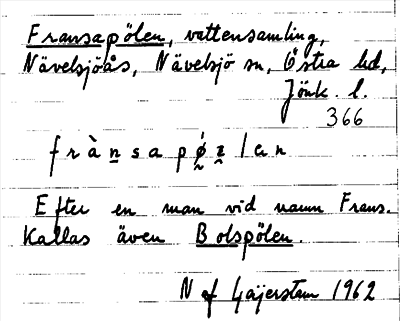 Fransapölen, vattensamling,
Nävelsjöås, Nävelsjö sn, Östra hd,
Jönk. l.
366
frànsapǿzlen
Efter en man vid namn Frans.
Kallas även Bolspölen.
N af Gajerstam 1962